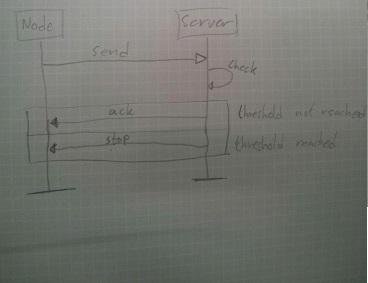 Node
Server
send
check
ack
threshold not reached
stop
threshold reached